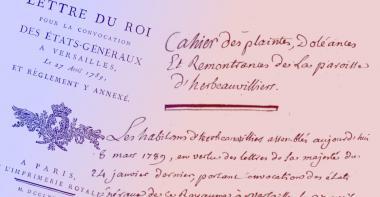 LETTRE DU ROI
POUR LA CONVOCATION
DES ÉTATS-GÉNÉRAUX
A VERSAILLES,
Le 27 Avril 1789,
ET RÉGLEMENT Y ANNEXÉ.
A PARIS,
L'IMPRIMERIE ROYALE
M. DCC
Cahier des plaintes, Doléances
Et Remontrances de La paroisse
d'herbeauvilliers.
Les habitans d'herbeauvilliers assemblés aujourdhui
8 mars 1789, en vertu des lettres de sa majesté du
24 janvier dernier, portant convocations des états